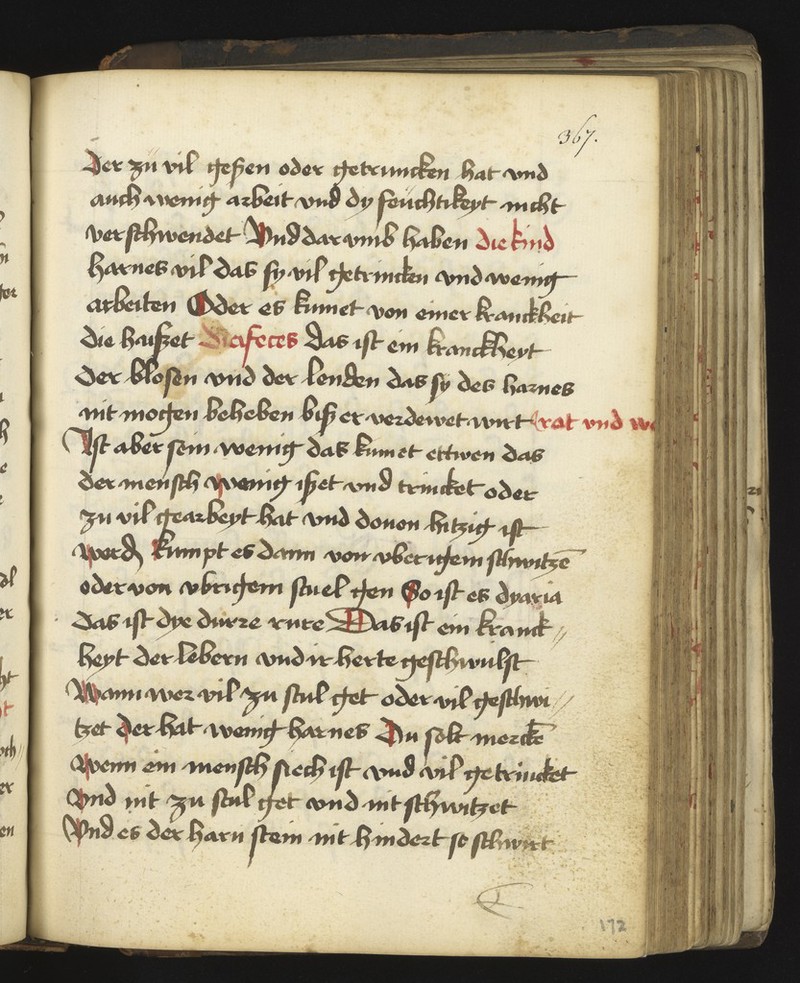 367.
Der zu vil geßen oder getruncken hat vnd
auch wenig arbeit vnd dy feuchtikeyt nicht
verschwendet Vnd dar vmb haben die kind
harnes vil das sy vil getrincken vnd wenig
arbeiten Oder es kumet von einer kranckheit
die haißet das ist ein kranckheyt
Der blosen vnd der lenden das sy des harnes
nit mogen beheben biß er verdewet wirt rot vnd
Ist aber sein wenig das kumet ettwen das
der mensch wenig ißet vnd trincket oder
zu vil gearbeyt hat vnd douon hitzig ist
word kumpt es dann von vberigem schwitzē
oder von vbrigem stuel gen So ist es dyaria
das ist dye durre rure Das ist ein kranck-
heyt der lebern vnd ir herte geschwulst
Wann wer vil zu stul get oder vil geschwi-
tzet der hat wenig harnes Du solt merckē
Wenn ein mensch siech ist vnd vil getrincket
Vnd nit zu stul get vnd nit schwitzet
Vnd es der harn stein nit hindert so schwirt
172